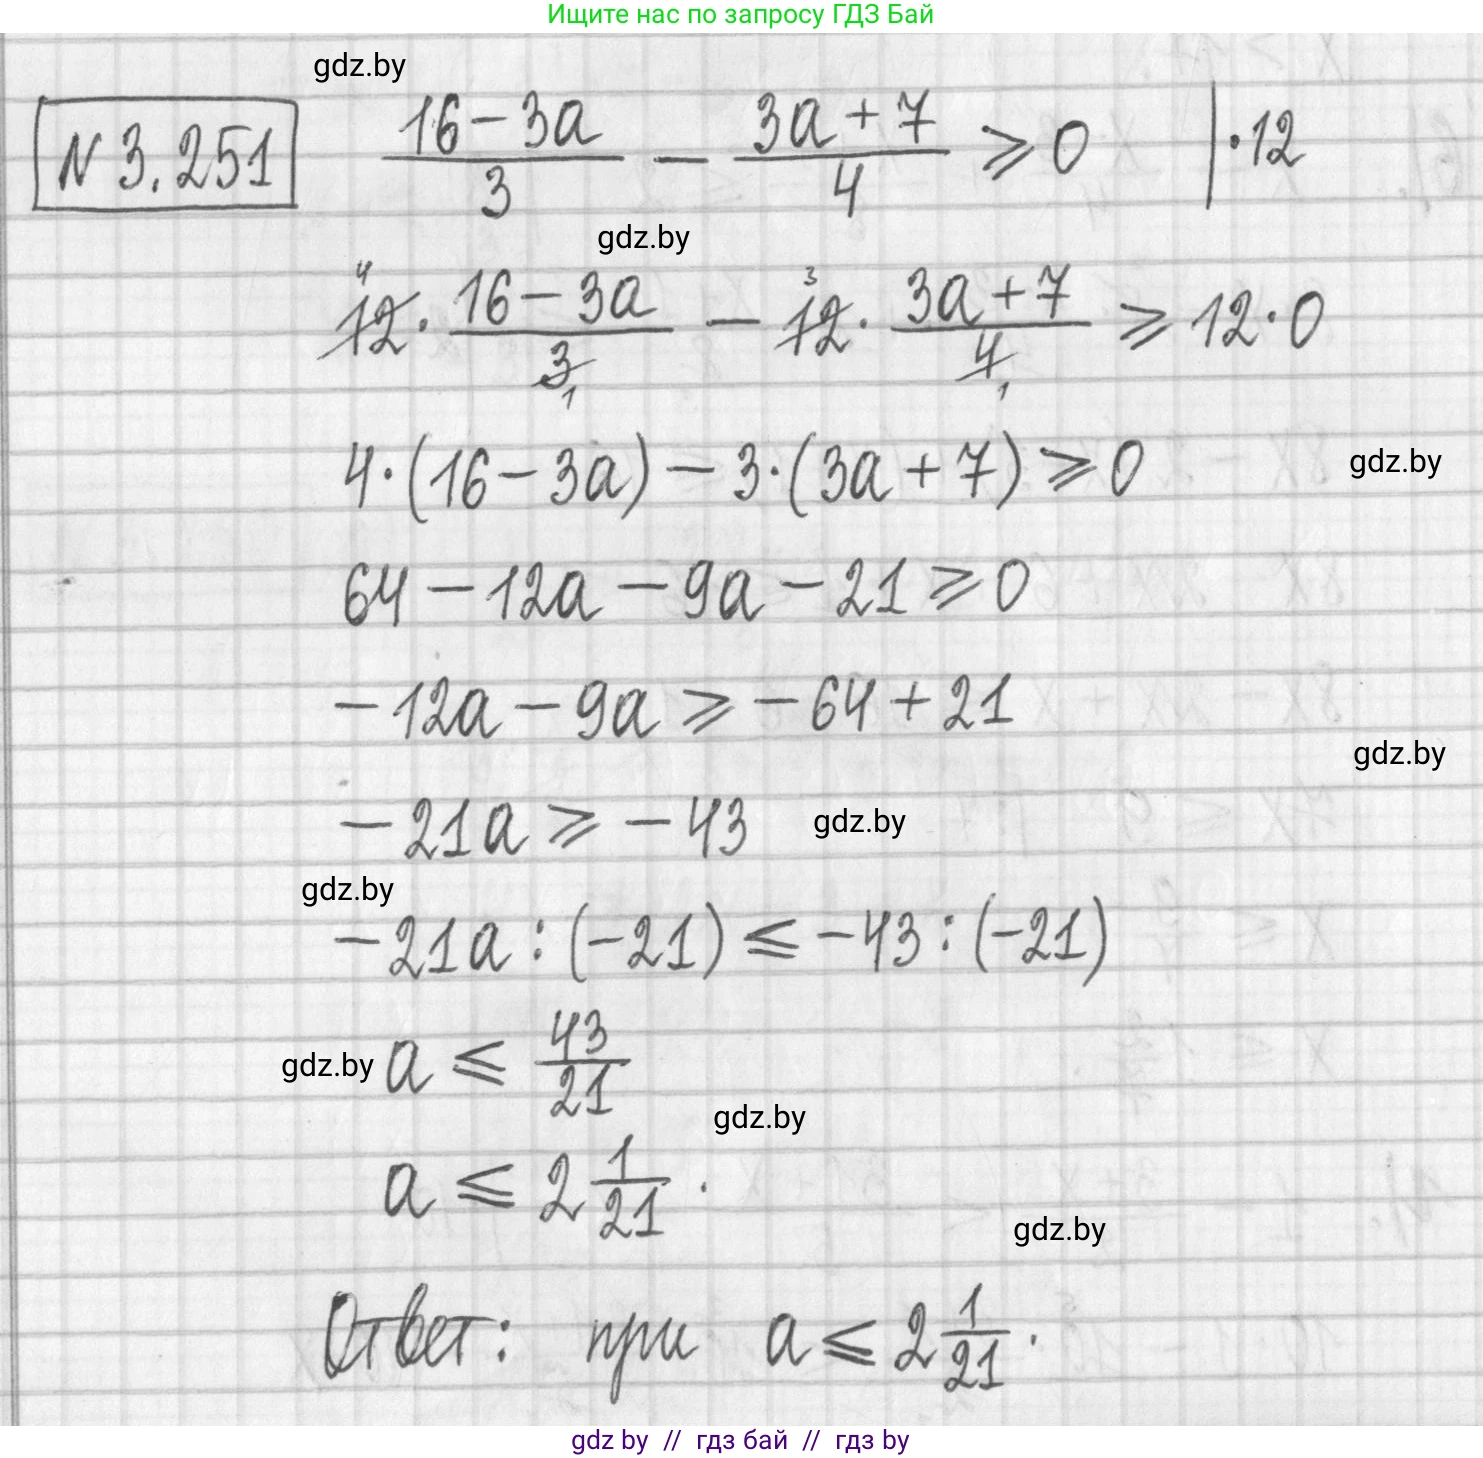 Ищите нас по запросу ГДЗ Бай
gdz.by
N 3.251 (16-3a)/3 - (3a+7)/4 ⩾ 0 | ·12
gdz.by
12⁴ · (16-3a)/3₁ - 12³ · (3a+7)/4₁ ⩾ 12·0
4·(16-3a) - 3·(3a+7) ⩾ 0 gdz.by
64 - 12a - 9a - 21 ⩾ 0
-12a - 9a ⩾ -64 + 21
gdz.by
-21a ⩾ -43 gdz.by
gdz.by
-21a : (-21) ⩽ -43 : (-21)
gdz.by a ⩽ 43/21
gdz.by
a ⩽ 2 1/21 .
gdz.by
Ответ: при a ⩽ 2 1/21 .
gdz by // гдз бай // гдз by